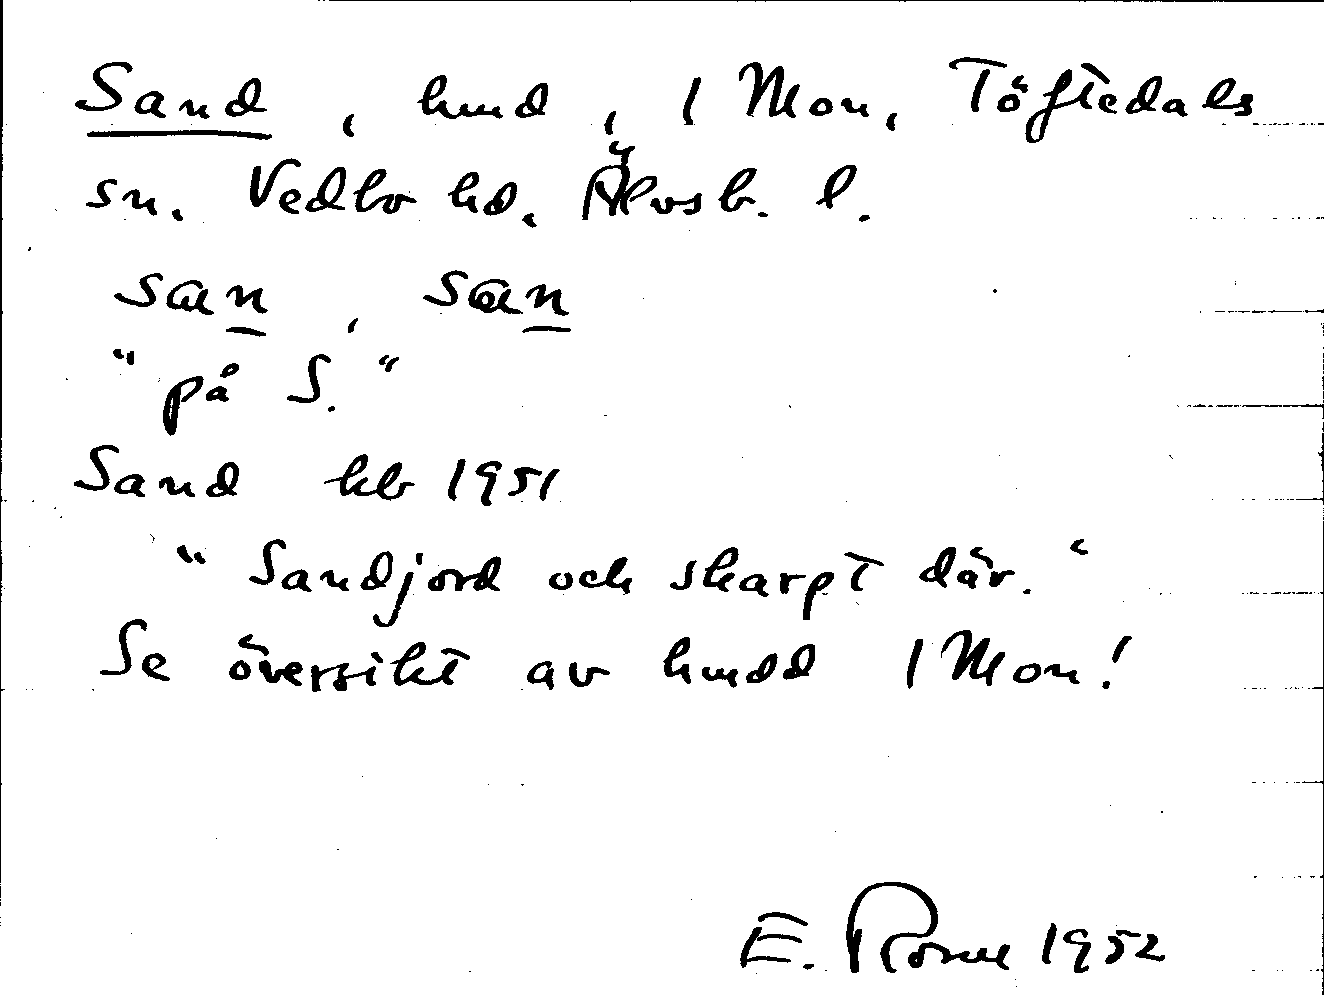 Sand, hmd, 1 Mon, Töftedals
sn. Vedbo hd. Älvsb. l.
san, san
"på S."
Sand kb 1951
"Sandjord och skarpt där."
Se översikt av hmdd 1 Mon!
E. 1952